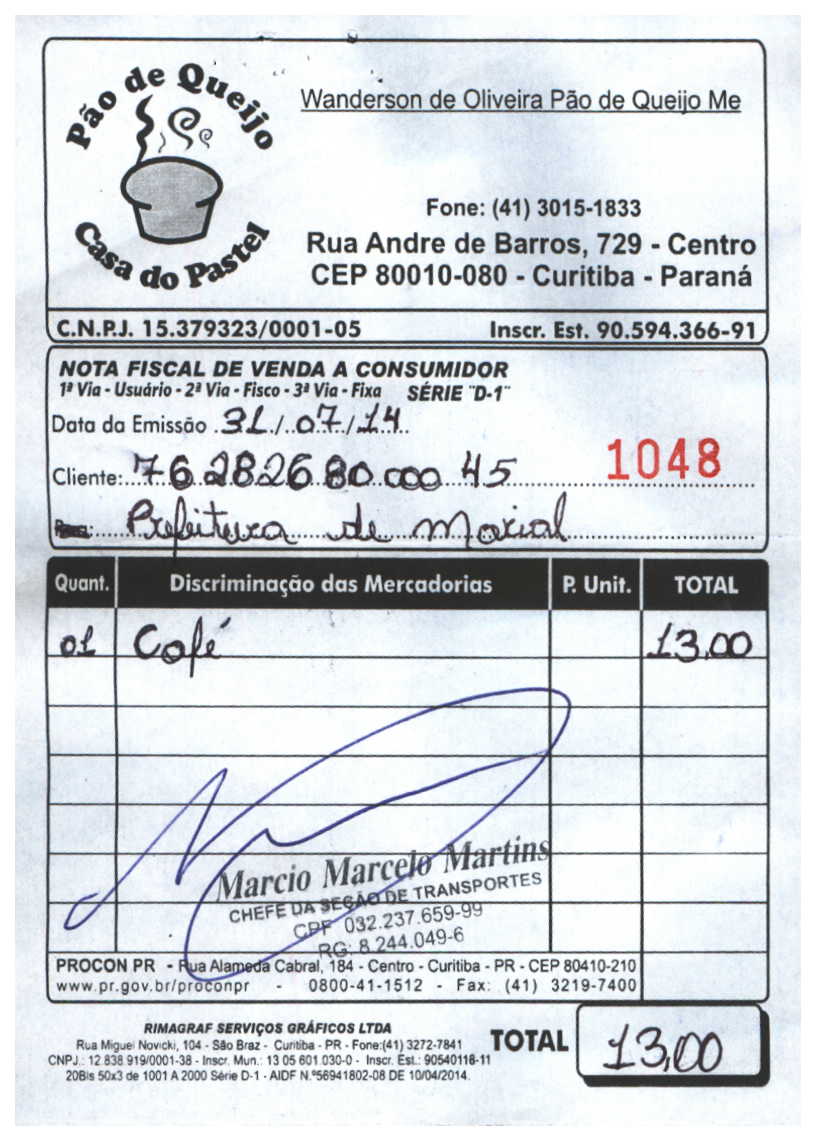 Pão de Queijo
Casa do Pastel
Wanderson de Oliveira Pão de Queijo Me
Fone: (41) 3015-1833
Rua Andre de Barros, 729 - Centro
CEP 80010-080 - Curitiba - Paraná
C.N.P.J. 15.379323/0001-05 Inscr. Est. 90.594.366-91
NOTA FISCAL DE VENDA A CONSUMIDOR
1ª Via - Usuário - 2ª Via - Fisco - 3ª Via - Fixa SÉRIE "D-1"
Data da Emissão 31/07/14
1048
Cliente: 76.282680.000 45
Prefeitura de Marial
Quant. Discriminação das Mercadorias P. Unit. TOTAL
01 Café 13,00
Marcio Marcelo Martins
CHEFE DA SEÇÃO DE TRANSPORTES
CPF 032.237.659-99
RG: 8.244.049-6
PROCON PR - Rua Alameda Cabral, 184 - Centro - Curitiba - PR - CEP 80410-210
www.pr.gov.br/proconpr - 0800-41-1512 - Fax: (41) 3219-7400
RIMAGRAF SERVIÇOS GRÁFICOS LTDA
Rua Miguel Novicki, 104 - São Braz - Curitiba - PR - Fone:(41) 3272-7841
CNPJ.: 12 838 919/0001-38 - Inscr. Mun.: 13 05 601.030-0 - Inscr. Est.: 90540118-11
20Bls 50x3 de 1001 A 2000 Série D-1 - AIDF N.º56941802-08 DE 10/04/2014.
TOTAL 13,00